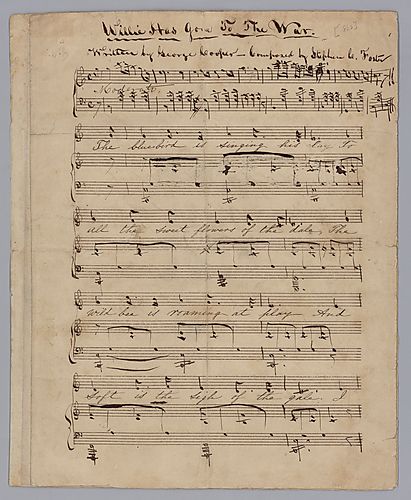 Willie Has Gone To The War.
Written by George Cooper Composed by Stephen C. Foster
Moderato.
The bluebird is singing his lay To
all the sweet flowers of the dale, The
wild bee is roaming at play And
Soft is the sigh of the gale. I